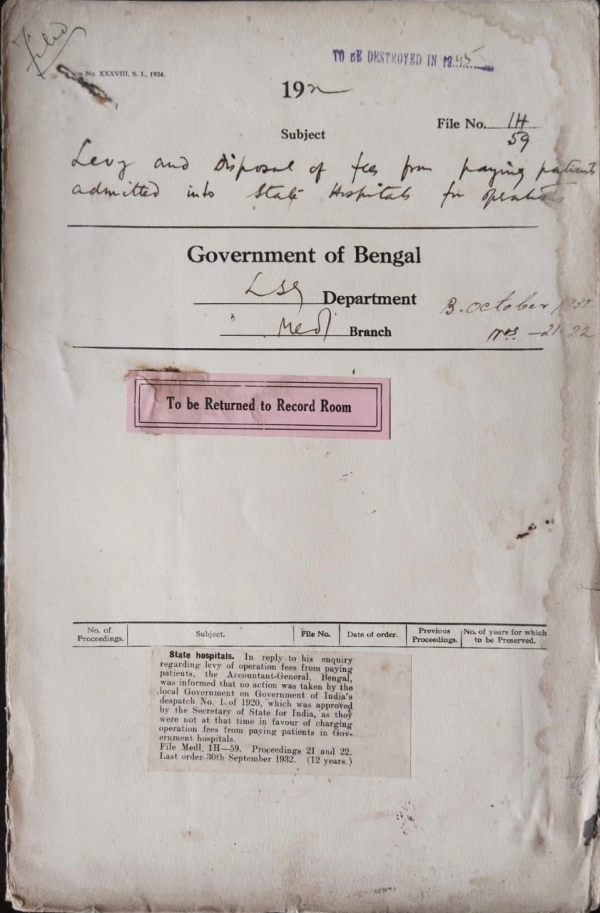 Filed
TO BE DESTROYED IN 1945
No. XXXVIII, S. I., 1924.
19
File No. 1H
59
Subject
Levy and Disposal of fees from paying patients
admitted into State Hospitals for operations
Government of Bengal
LSG Department
Medl Branch
B. October 1932
Nos. 21-22
To be Returned to Record Room
No. of Proceedings. Subject. File No. Date of order. Previous Proceedings. No. of years for which to be Preserved.
State hospitals. In reply to his enquiry
regarding levy of operation fees from paying
patients, the Accountant-General, Bengal,
was informed that no action was taken by the
local Government on Government of India's
despatch No. 1. of 1920, which was approved
by the Secretary of State for India, as they
were not at that time in favour of charging
operation fees from paying patients in Gov-
ernment hospitals.
File Medl. 1H—59. Proceedings 21 and 22.
Last order 30th September 1932. (12 years.)